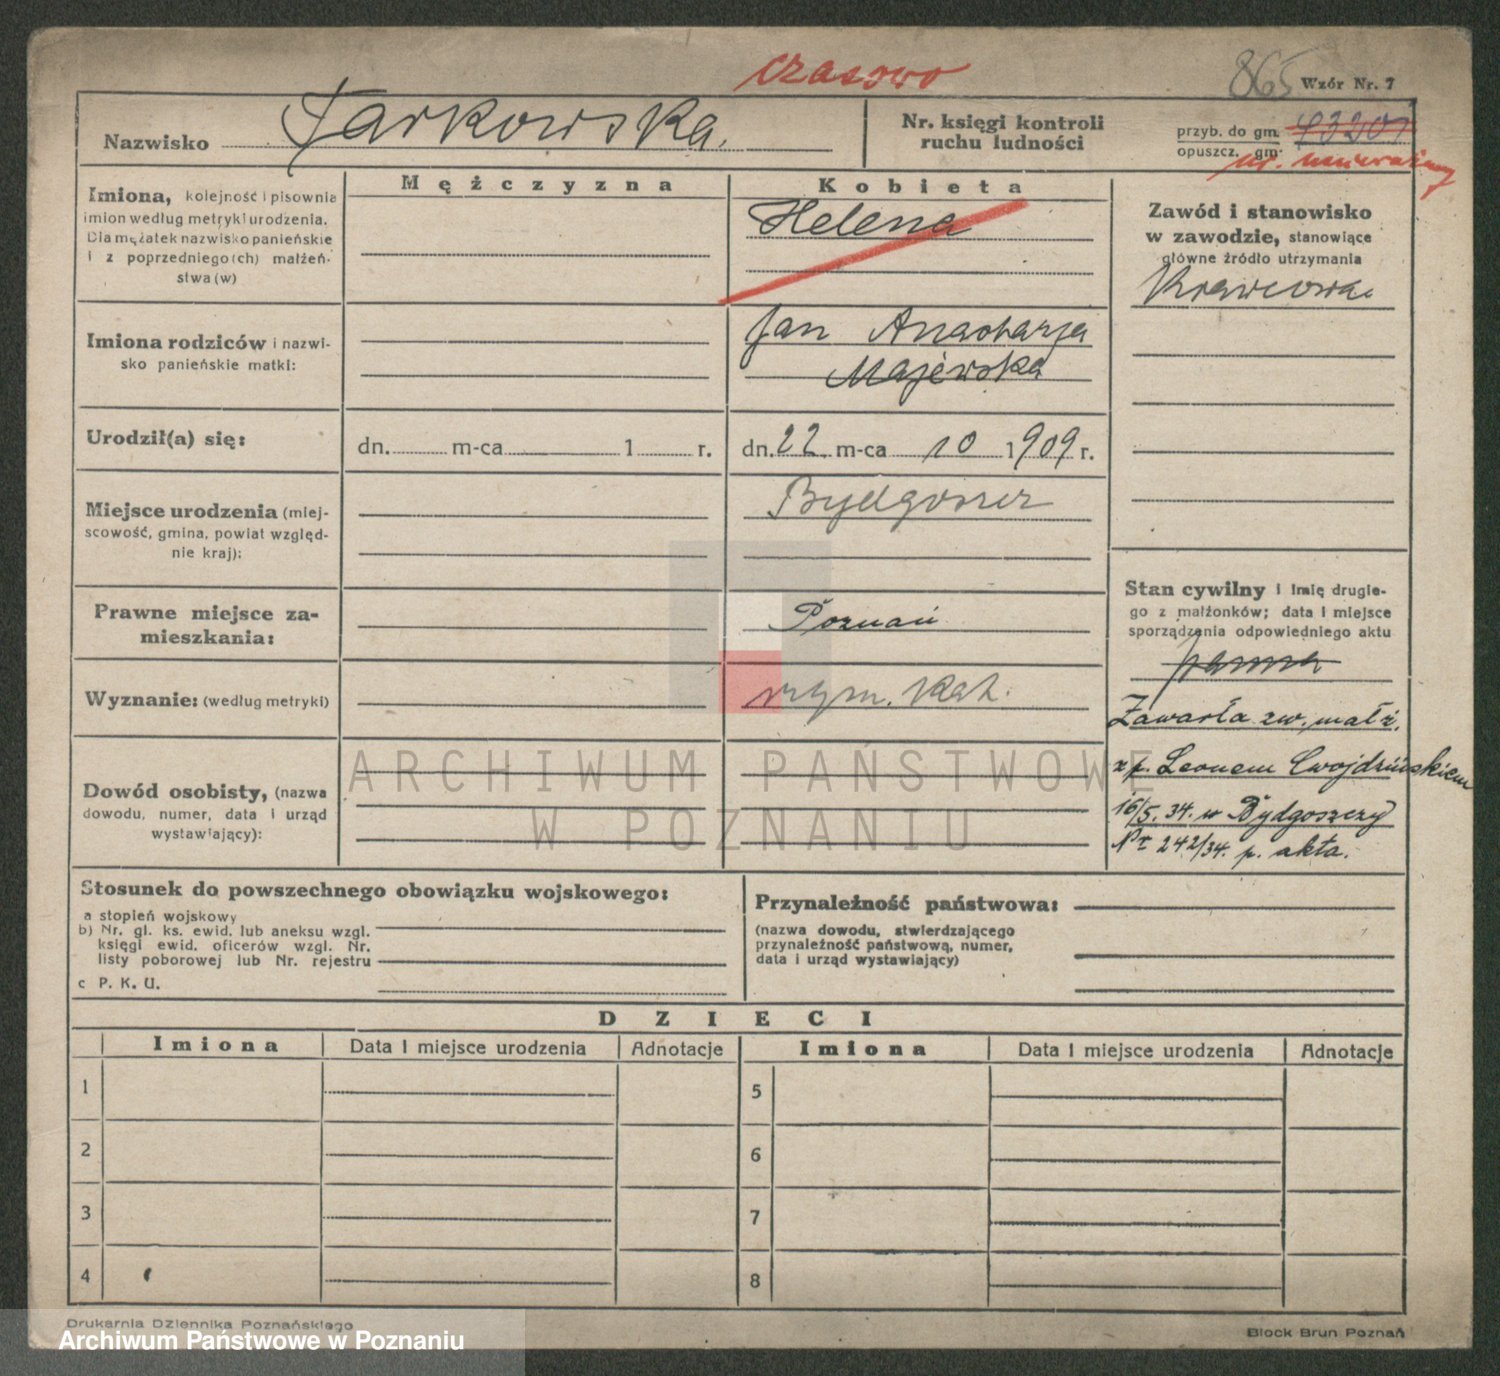 czasowo
865 Wzór Nr. 7
Nazwisko Tarkowska.
Nr. księgi kontroli
ruchu ludności
przyb. do gm.
opuszcz. gm.
nr. nieważny
Mężczyzna
Kobieta
Imiona, kolejność i pisownia
imion według metryki urodzenia.
Dla mężatek nazwisko panieńskie
i z poprzedniego(ch) małżeń-
stwa(w)
Helena
Zawód i stanowisko
w zawodzie, stanowiące
główne źródło utrzymania
Krawcowa
Imiona rodziców i nazwi-
sko panieńskie matki:
Jan Anastazja
Majewska
Urodził(a) się:
dn. m-ca 1 r.
dn. 22 m-ca 10 1909 r.
Miejsce urodzenia (miej-
scowość, gmina, powiat względ-
nie kraj):
Bydgoszcz
Prawne miejsce za-
mieszkania:
Poznań
Stan cywilny i imię drugie-
go z małżonków; data i miejsce
sporządzenia odpowiedniego aktu
panna
Zawarła zw. małż.
z p. Leonem Cwojdzińskiem
16/5. 34. w Bydgoszczy
Nr 242/34. p. akta.
Wyznanie: (według metryki)
rzym. kat.
Dowód osobisty, (nazwa
dowodu, numer, data i urząd
wystawiający):
ARCHIWUM PAŃSTWOWE
W POZNANIU
Stosunek do powszechnego obowiązku wojskowego:
a stopień wojskowy
b) Nr. gl. ks. ewid. lub aneksu wzgl.
księgi ewid. oficerów wzgl. Nr.
listy poborowej lub Nr. rejestru
c P. K. U.
Przynależność państwowa:
(nazwa dowodu, stwierdzającego
przynależność państwową, numer,
data i urząd wystawiający)
DZIECI
Imiona Data i miejsce urodzenia Adnotacje Imiona Data i miejsce urodzenia Adnotacje
1 5
2 6
3 7
4 8
Drukarnia Dziennika Poznańskiego
Block Brun Poznań
Archiwum Państwowe w Poznaniu